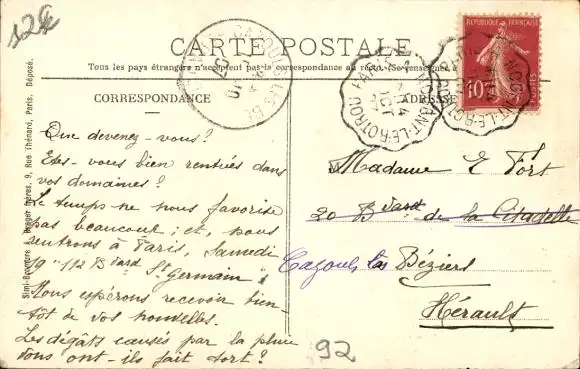 12%
CARTE POSTALE
Tous les pays étrangers n'acceptent pas la correspondance au recto. (Se renseigner
CORRESPONDANCE
ADRESSE
REPUBLIQUE FRANÇAISE
10
PARIS
NOGENT-LE-ROTROU
14
OCT
07
CAZOULS-LES-B
Que devenez-vous?
Etes-vous bien rentrées dans
vos domaines?
Le temps ne nous favorise
pas beaucoup; et, nous
rentrons à Paris, Samedi
19 "112 Bvard St Germain"
Nous espérons recevoir bien-
tôt de vos nouvelles.
Les dégâts causés par la pluie
vous ont-ils fait tort?
Madame E Fort
20 Bvard de la Citadelle
Cazouls les Béziers
Hérault
92
frères, 9, Rue Thénard, Paris. Déposé.